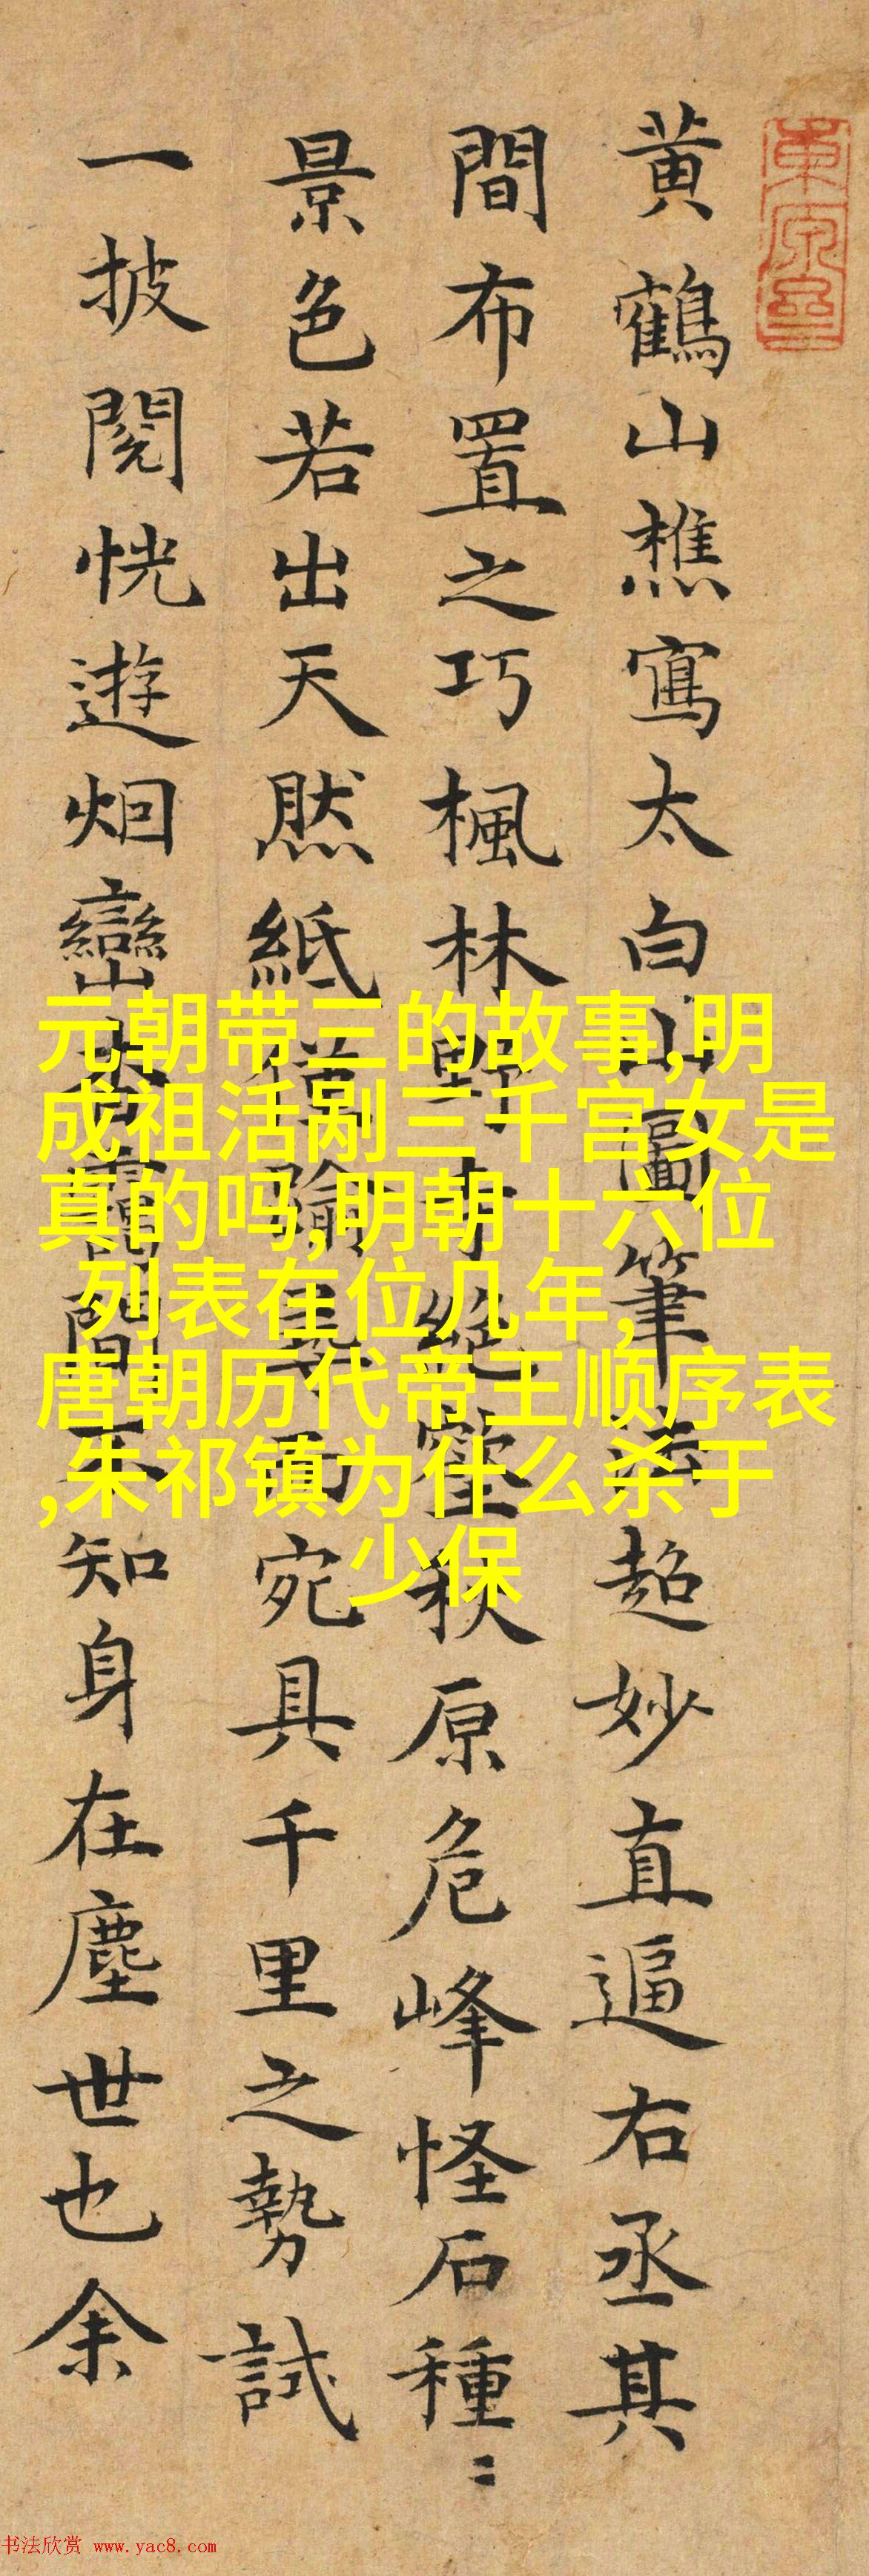 黄鶴山樵寫太白山圖筆法超妙直逼右丞其
間布置之巧楓林野寺絶壑秋原危峰怪石種〻
景色若出天然紙僅踰宛具千里之勢試
一披閲恍遊烟巒杳靄間不知身在塵世也余
元朝带三的故事,明
成祖活剐三千宫女是
真的吗,明朝十六位
列表在位几年,
唐朝历代帝王顺序表
,朱祁镇为什么杀于
少保
书法欣赏 www.yac8.com